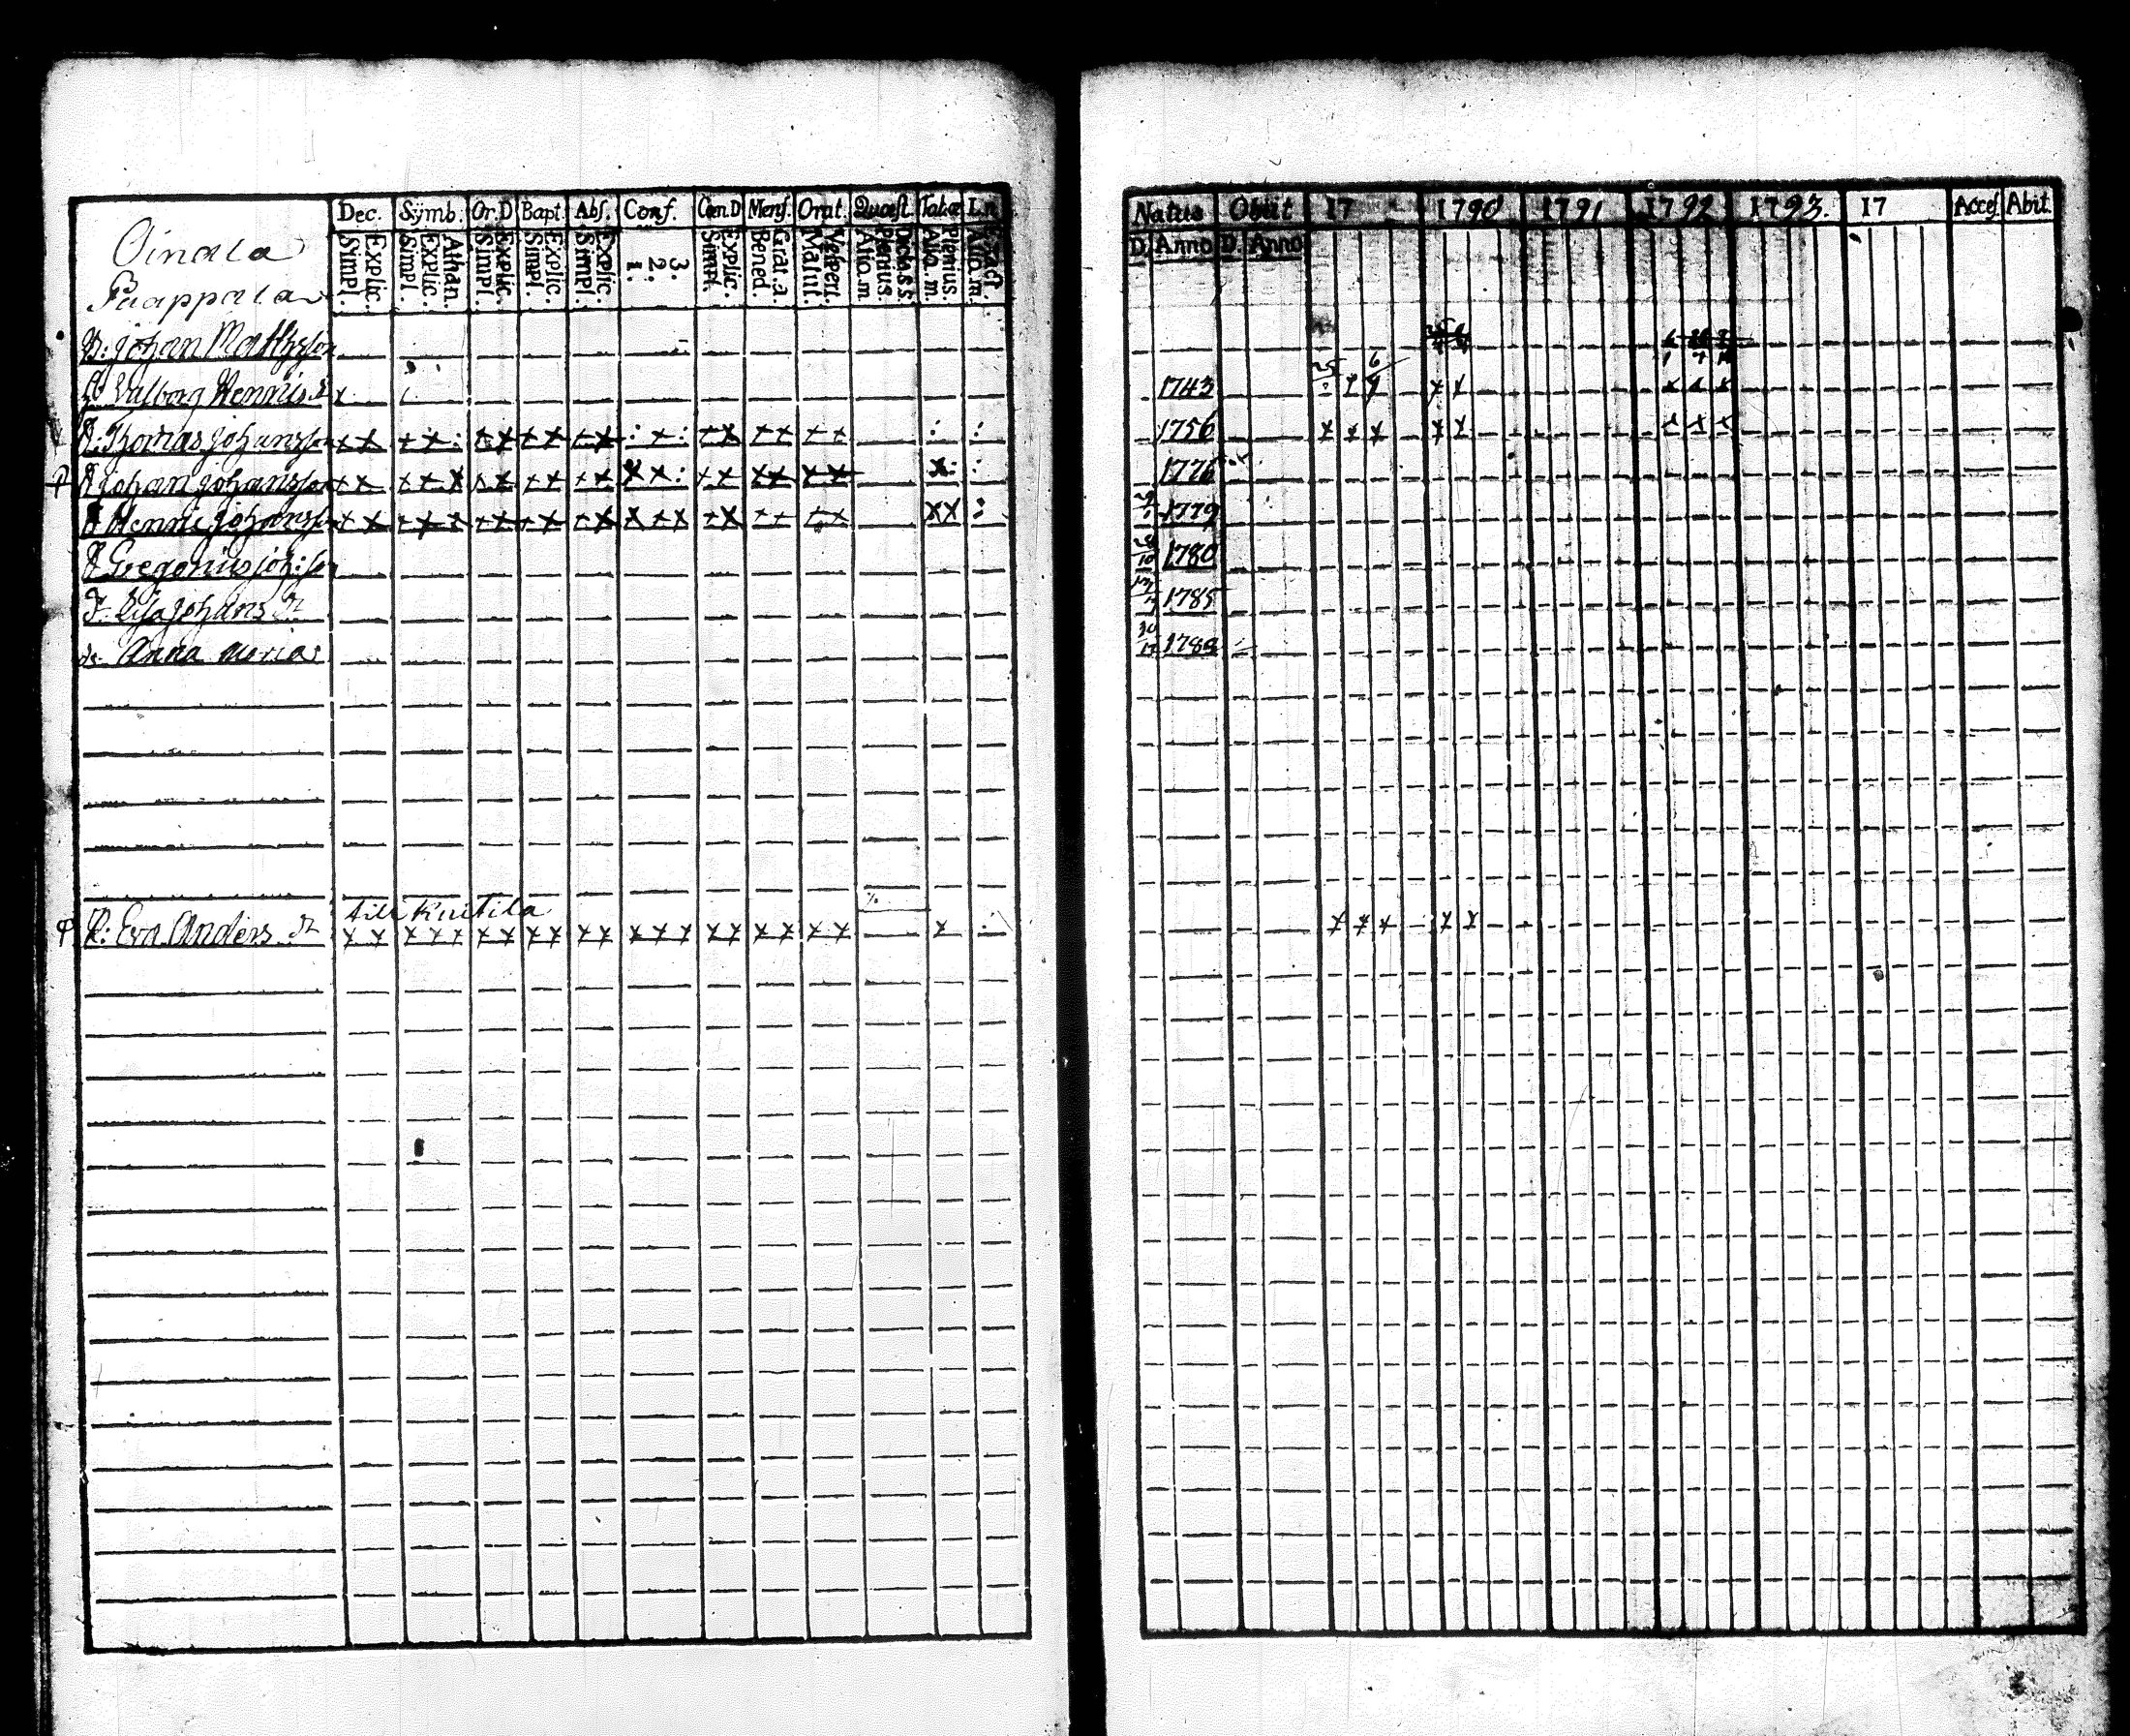 Oinala
Paappala
Dec. Symb. Or.D Bapt. Abs. Conf. Cœn.D Mens. Orat. Quæst. Tabœ L.n
Explic. Simpl. Athan. Explic. Simpl. Explic. Simpl. Explic. Simpl. Explic. Simpl. 3. 2. 1. Explic. Simpl. Grat.a. Bened. Vespert. Matut. Dicta s.s. Plenius. Alio.m. Plenius. Aliq.m. Exact. Alio.m.
Natus Obiit 17 1790 1791 1792 1793. 17 Acces. Abit.
D. Anno D. Anno
B: Johan Mattsson
Valborg Hennis d 1743
Thomas Johansson 1756
Johan Johansson 1776
Henric Johansson 1779
Gregorius Joh:son 1780
Lisa Johans dr 1785
Anna Maria 1789
till Kuitila
P: Eva Anders dr